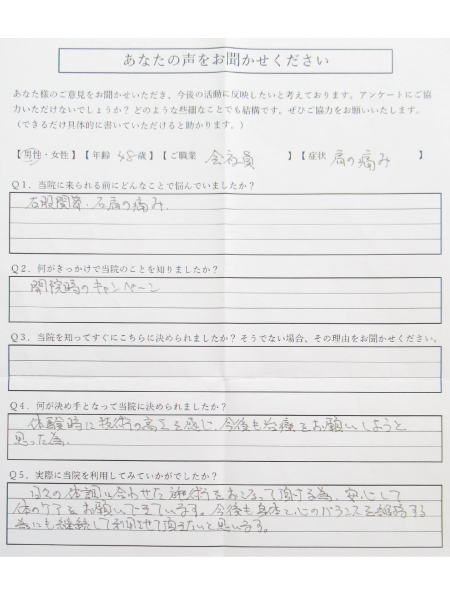 あなたの声をお聞かせください
あなた様のご意見をお聞かせいただき、今後の活動に反映したいと考えております。アンケートにご協
力いただけないでしょうか？ どのような些細なことでも結構です。ぜひご協力をお願いいたします。
（できるだけ具体的に書いていただけると助かります。）
【男性・女性】【年齢 38歳】【ご職業 会社員 】【症状 肩の痛み 】
Q1．当院に来られる前にどんなことで悩んでいましたか？
右股関節・右肩の痛み．
Q2．何がきっかけで当院のことを知りましたか？
開院時のキャンペーン
Q3．当院を知ってすぐにこちらに決められましたか？ そうでない場合、その理由をお聞かせください。
Q4．何が決め手となって当院に決められましたか？
体験時に技術の高さを感じ、今後も治療をお願いしようと
思った為．
Q5．実際に当院を利用してみていかがでしたか？
日々の体調に合わせた施術をおこなって頂ける為、安心して
体のケアをお願いできています。今後も身体と心のバランスを維持する
為にも継続して利用させて頂きたいと思います。